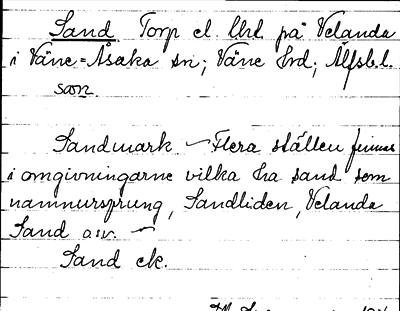 Sand Torp el. lht på Velanda
i Väne-Åsaka sn; Väne hrd; Älfsb.l.
san.
Sandmark - Flera ställen finnas
i omgivningarne vilka ha sand som
namnursprung, Sandliden, Velanda
Sand o.s.v. -
Sand ek.